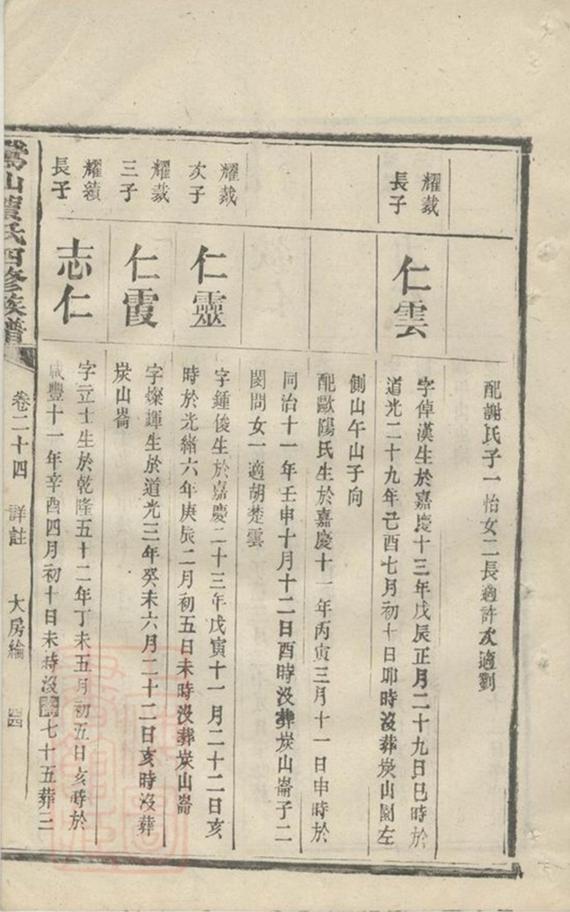 配謝氏子一怡女二長適許次適劉
耀裁
長子
仁雲
字倬漢生於嘉慶十三年戊辰正月二十九日巳時於
道光二十九年己酉七月初十日卯時沒葬炭山園左
側山午山子向
配歐陽氏生於嘉慶十一年丙寅三月十一日申時於
同治十一年壬申十月十二日酉時沒葬炭山崙子二
閔問女一適胡楚雲
耀裁
次子
仁靈
字鍾俊生於嘉慶二十三年戊寅十一月二十二日亥
時於光緒六年庚辰二月初五日未時沒葬炭山崙
耀裁
三子
仁霞
字燦輝生於道光三年癸未六月二十二日亥時沒葬
炭山崙
耀績
長子
志仁
字立士生於乾隆五十二年丁未五月初五日亥時於
咸豐十一年辛酉四月初十日未時沒壽七十五葬三
山氏四修族譜
卷二十四 詳註 大房綸